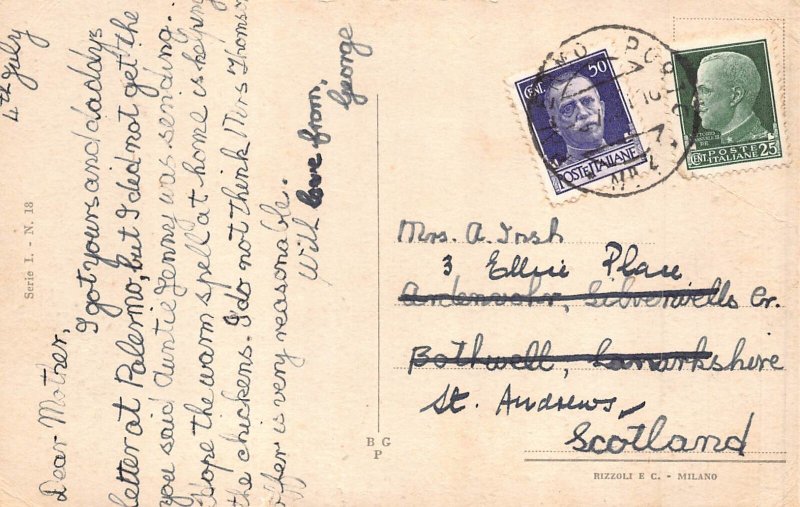 4th July
Dear Mother,
I got yours and daddys
letter at Palermo, but I did not get the
you said Auntie Jenny was sending...
Hope the warm spell at home is helping
the chickens. I do not think Mrs Thomson
offer is very reasonable.
With love from,
George
Serie I. - N. 18
B G
P
CENT. 50
POSTE ITALIANE
POSTE
ITALIANE
CENT. 25
Mrs. A. Irsh
3 Ellice Place
Ardenvohr, Silverwells Cr.
Bothwell, Lanarkshire
St. Andrews,
Scotland
RIZZOLI E C. - MILANO